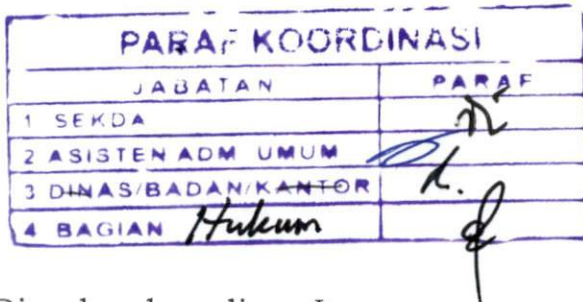 PARAF KOORDINASI
JABATAN PARAF
1 SEKDA
2 ASISTEN ADM UMUM
3 DINAS/BADAN/KANTOR
4 BAGIAN Hukum